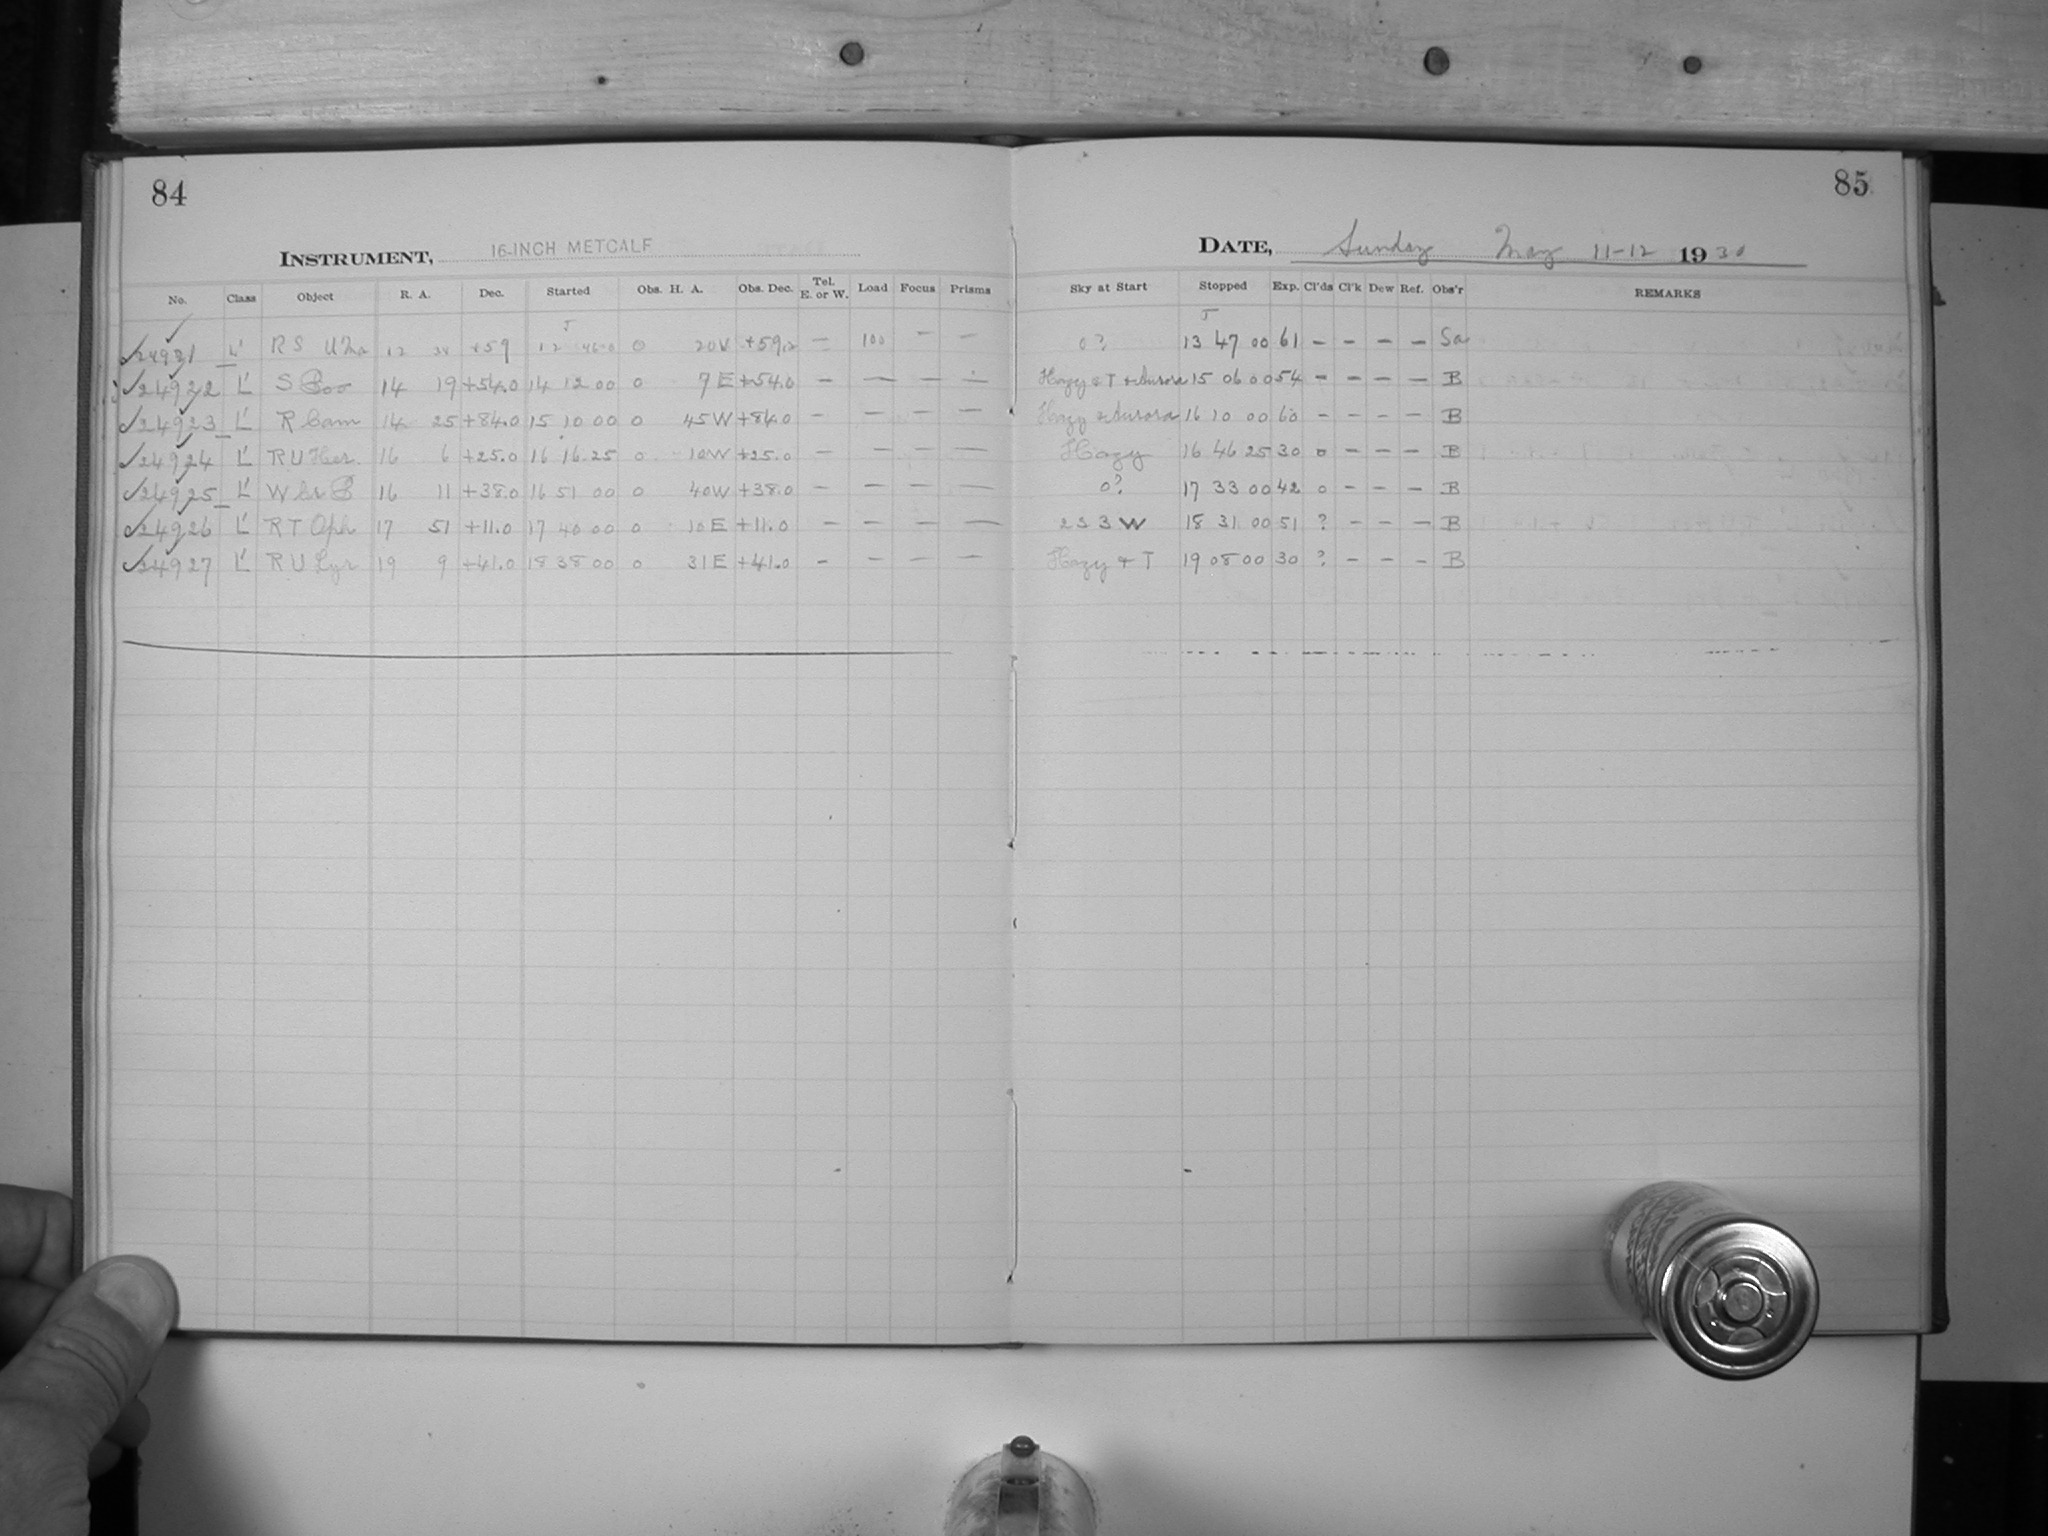 84
INSTRUMENT, 16-INCH METCALF
No. Class Object R. A. Dec. Started Obs. H. A. Obs. Dec. Tel. E. or W. Load Focus Prisms
✓24921 L' R S U Ma 12 34 +59 12 46 0 0 20W +59.2 — 100 — —
✓24922 L' S Boo 14 19 +54.0 14 12 00 0 7 E +54.0 — — — —
✓24923 L' R Cam 14 25 +84.0 15 10 00 0 45 W +84.0 — — — —
✓24924 L' R U Her. 16 6 +25.0 16 16 25 0 10W +25.0 — — — —
✓24925 L' W Cr B 16 11 +38.0 16 51 00 0 40W +38.0 — — — —
✓24926 L' R T Oph 17 51 +11.0 17 40 00 0 10 E +11.0 — — — —
✓24927 L' R U Lyr 19 9 +41.0 18 38 00 0 31 E +41.0 — — — —
85
DATE, Sunday May 11-12 1930
Sky at Start Stopped Exp. Cl'ds Cl'k Dew Ref. Obs'r REMARKS
0? 13 47 00 61 — — — — Sa
Hazy & T & Aurora 15 06 00 54 — — — — B
Hazy & Aurora 16 10 00 60 — — — — B
Hazy 16 46 25 30 0 — — — B
0? 17 33 00 42 0 — — — B
2 S 3 W 18 31 00 51 ? — — — B
Hazy & T 19 08 00 30 ? — — — B